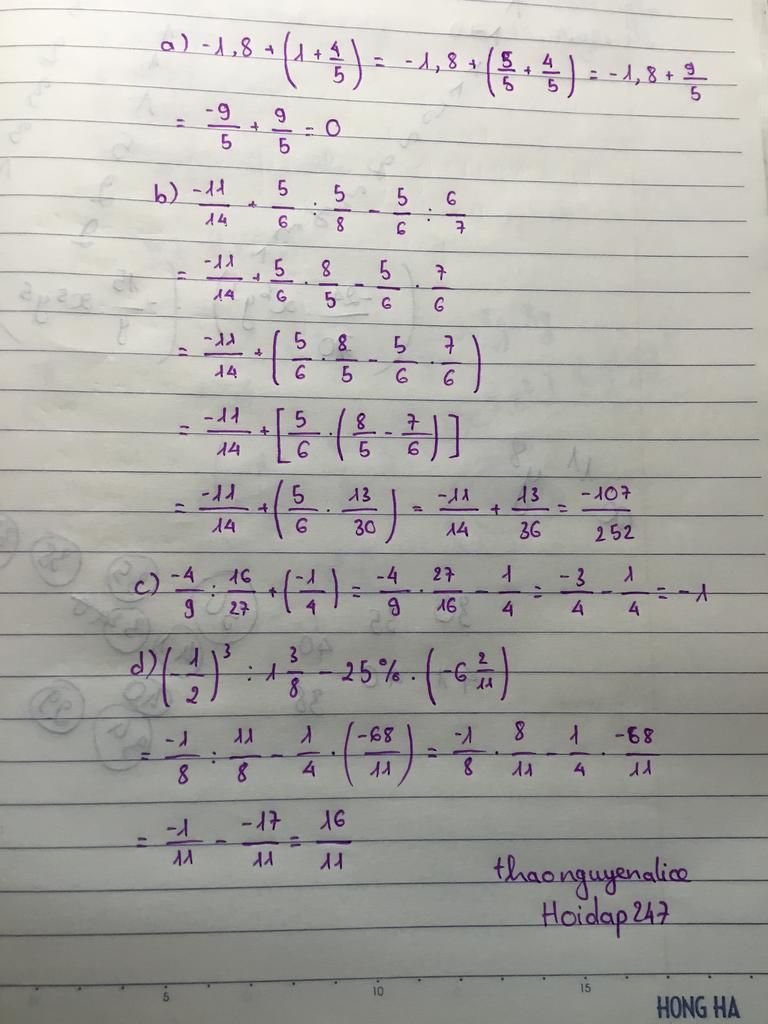 a) -1,8 + (1 + 4/5) = -1,8 + (5/5 + 4/5) = -1,8 + 9/5
= -9/5 + 9/5 = 0
b) -11/14 + 5/6 : 5/8 - 5/6 : 6/7
= -11/14 + 5/6 . 8/5 - 5/6 . 7/6
= -11/14 + (5/6 . 8/5 - 5/6 . 7/6)
= -11/14 + [5/6 . (8/5 - 7/6)]
= -11/14 + (5/6 . 13/30) = -11/14 + 13/36 = -107/252
c) -4/9 : 16/27 + (-1/4) = -4/9 . 27/16 - 1/4 = -3/4 - 1/4 = -1
d) (-1/2)³ : 1 3/8 - 25% . (-6 2/11)
= -1/8 : 11/8 - 1/4 . (-68/11) = -1/8 . 8/11 - 1/4 . -68/11
= -1/11 - -17/11 = 16/11
thaonguyenalice
Hoidap247
5 10 15
HONG HA